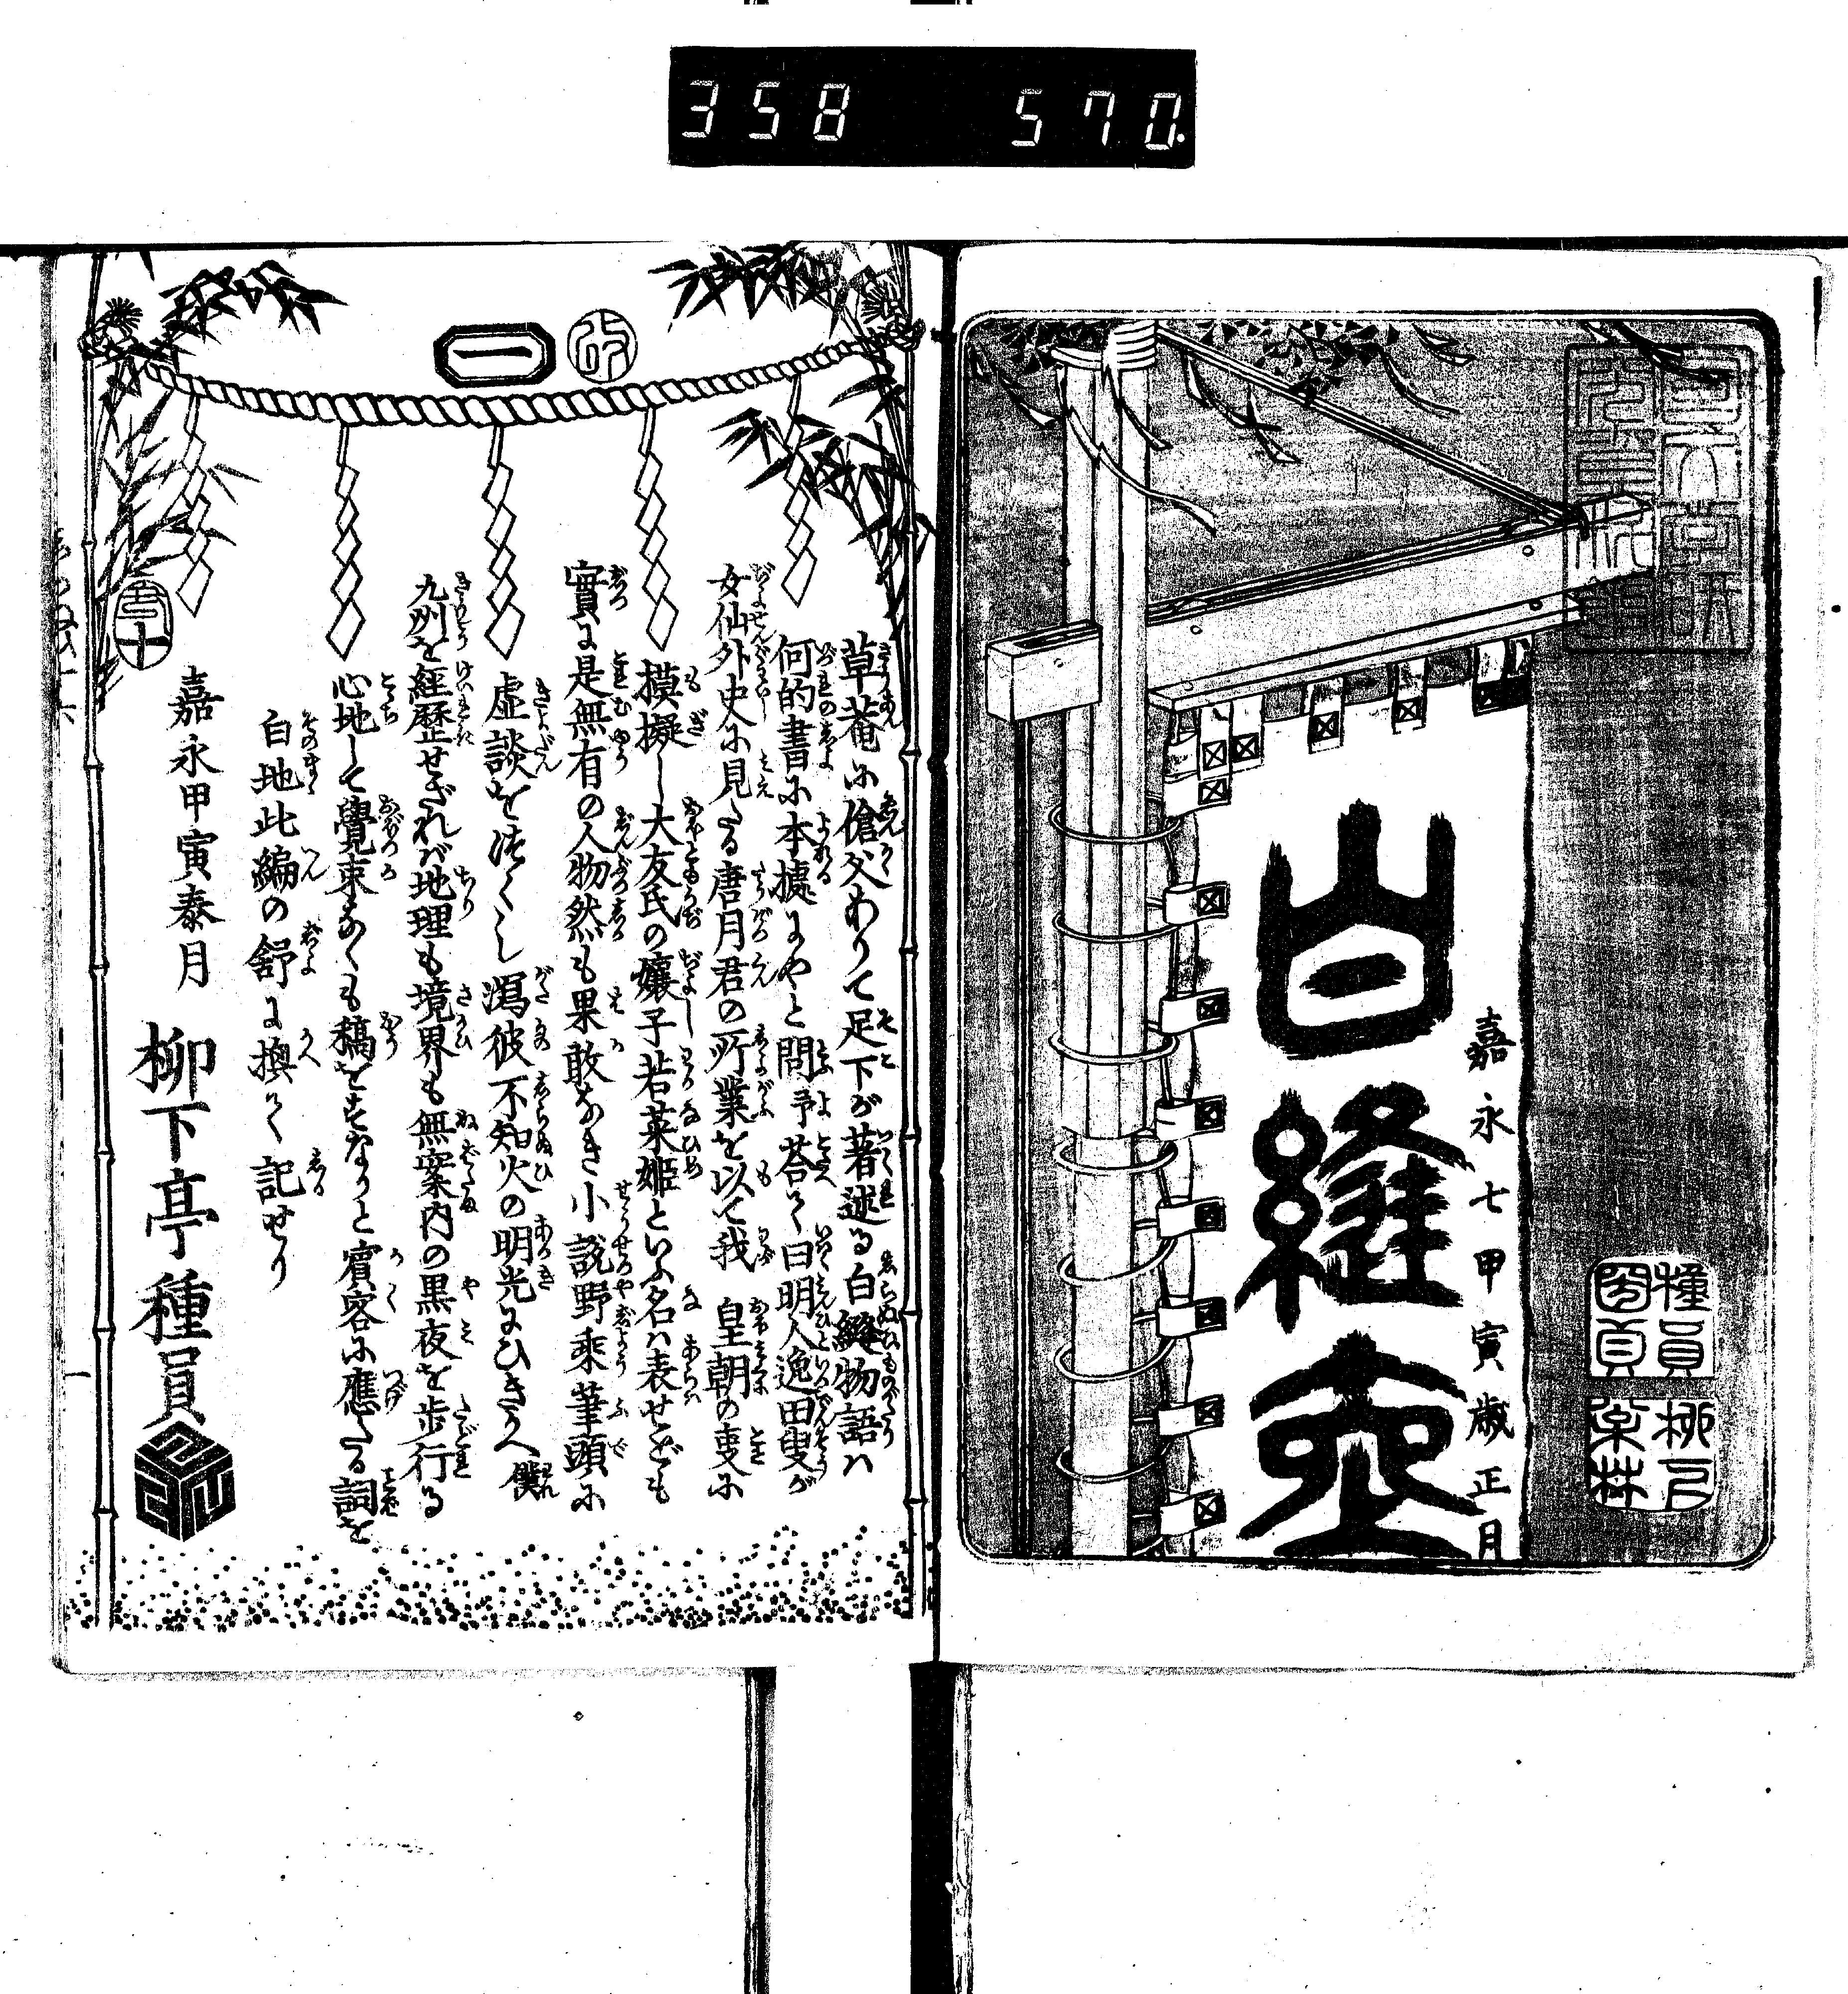 358 570.
白縫
嘉永七甲寅歳正月
種員
一
草菴に傖父ありて足下が著述る白縫物語ハ
何的書に本據にやと問予荅て曰明人逸田叟が
女仙外史に見たる唐月君の所業を以て我 皇朝の叓に
摸擬し大友氏の孃子若菜姫といふ名ハ表せども
實に是無有の人物然も果敢なき小説野乘筆頭に
虚談をつくし潟彼不知火の明光にひきかへ僕
九州を経歴せざれバ地理も境界も無案内の黒夜を歩行る
心地して覺束なくも稿をせなりと賓客に應たる詞を
自地此編の舒に換て記せり
嘉永甲寅泰月
柳下亭種員
一